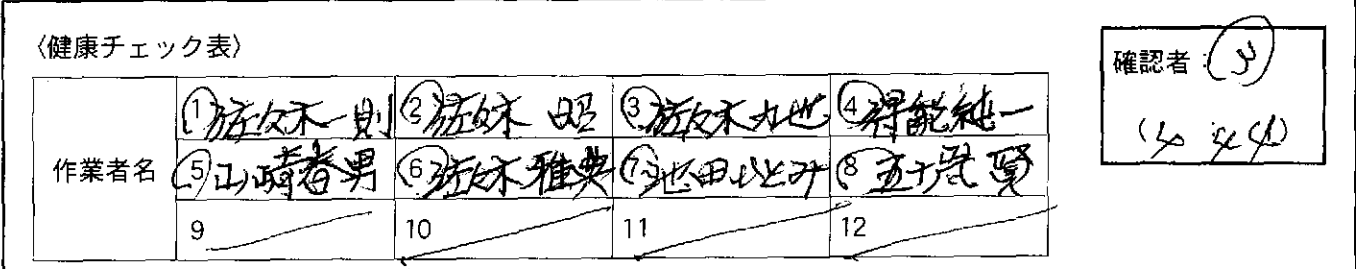 〈健康チェック表〉
確認者:
作業者名
①佐々木一則 ②佐々木 昭 ③佐々木 ④得能純一
⑤山崎春男 ⑥佐々木雅典 ⑦池田ひとみ ⑧五十嵐 賢
9 10 11 12